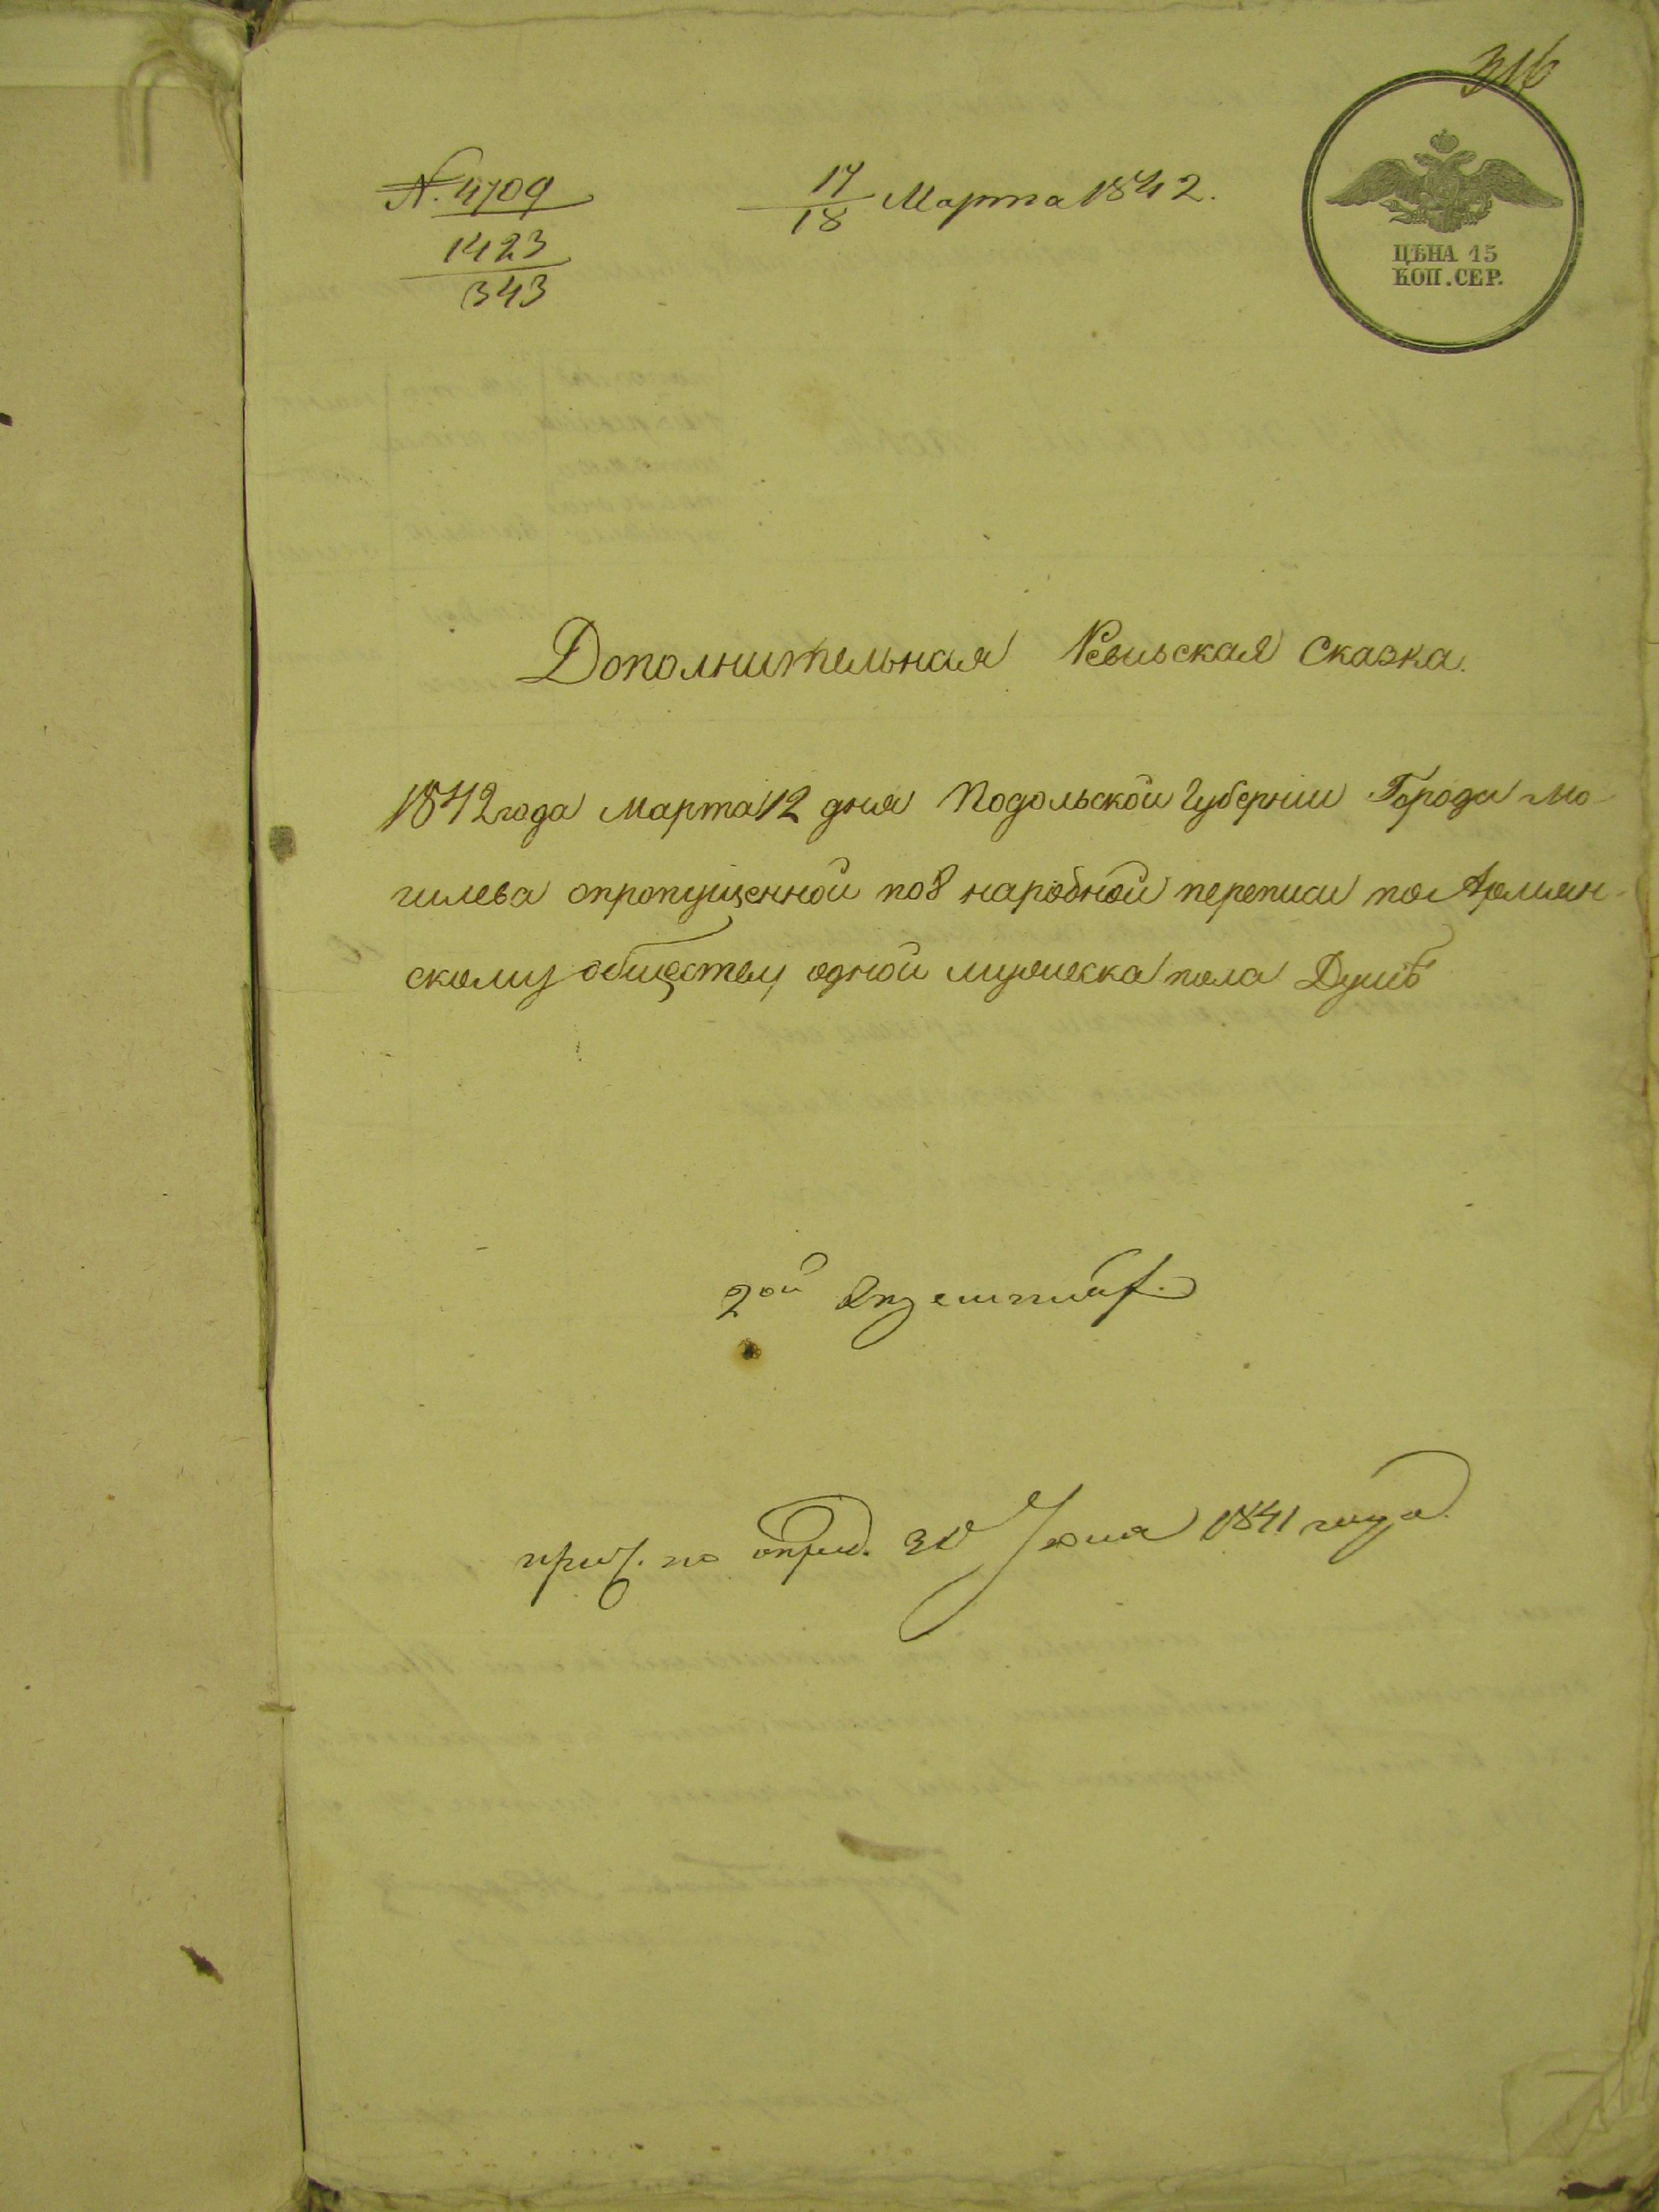 316
№ 4709
1423
343
17/18 Марта 1842.
ЦѢНА 15
КОП. СЕР.
Дополнительная Ревизская Сказка.
1842 года Марта 12 дня Подольской Губернии Города Мо-
гилева опропущенной по 8 народной переписи по Армян-
скому обществу одной мужеска пола Душѣ
2ой Экземпляр.
по опред. 30 Июня 1841 года.